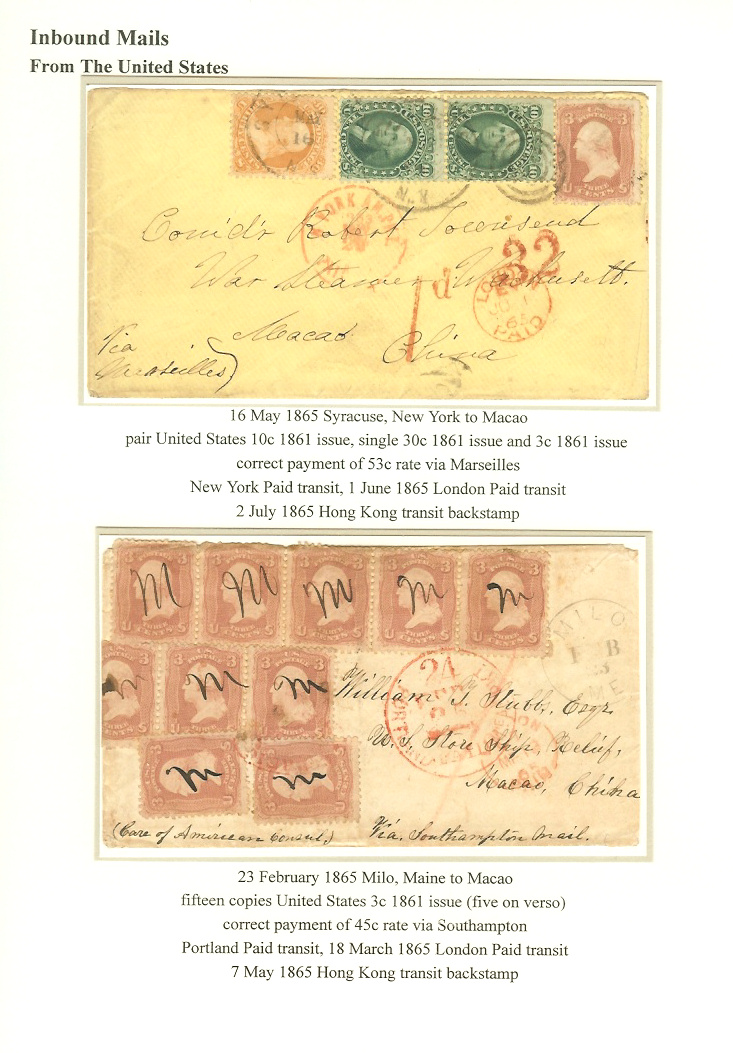 Inbound Mails
From The United States
3 3
U.S. POSTAGE
THREE CENTS
U S
MAY
16
N.Y.
Com'd'r Robert Townsend
32
1 d
War Steamer Wachusett.
LONDON
PAID
Macao
China
Via
Marseilles
16 May 1865 Syracuse, New York to Macao
pair United States 10c 1861 issue, single 30c 1861 issue and 3c 1861 issue
correct payment of 53c rate via Marseilles
New York Paid transit, 1 June 1865 London Paid transit
2 July 1865 Hong Kong transit backstamp
M M M M M
MILO
ME
M M M
24
William T. Stubbs, Esqr.
U.S. Store Ship, Relief,
Macao, China
M M
(Care of American Consul.)
Via. Southampton Mail.
23 February 1865 Milo, Maine to Macao
fifteen copies United States 3c 1861 issue (five on verso)
correct payment of 45c rate via Southampton
Portland Paid transit, 18 March 1865 London Paid transit
7 May 1865 Hong Kong transit backstamp